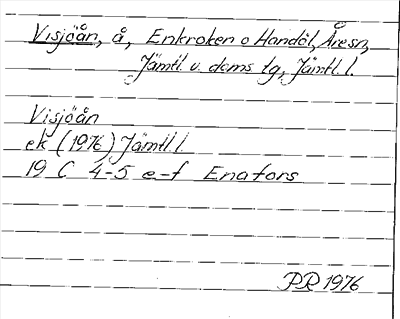 Visjöån, å, Enkroken o Handöl, Åresn,
Jämtl. v. doms tg, Jämtl. l.
Visjöån
ek (1976) Jämtl l.
19 C 4-5 e-f Enafors
PR 1976